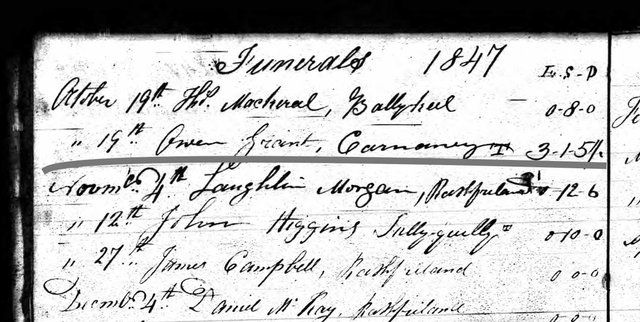 Funerals 1847
L-S-D
October 19th Thos. Mackeral, Ballykeel 0-8-0
" 19th Owen Grant, Carnaney 3-1-5½
Novmbr. 4th Laughlin Morgan, Rathfriland 12-6
" 12th John Higgins Tullyquilly 0-10-0
" 27th James Campbell, Rathfriland 0-0-0
Decmbr. 4th Daniel McKay, Rathfriland